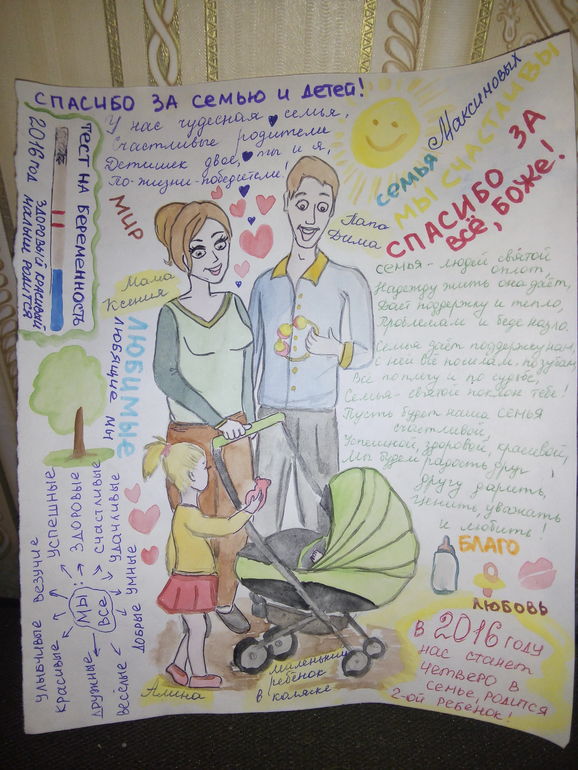 СПАСИБО ЗА СЕМЬЮ И ДЕТЕЙ!
У нас чудесная семья,
Счастливые родители
Детишек двое, ты и я,
По-жизни-победители!
СЕМЬЯ Максимовых
МЫ СЧАСТЛИВЫ
СПАСИБО ЗА
ВСЁ, БОЖЕ!
ТЕСТ НА БЕРЕМЕННОСТЬ
2016 ГОД
ЗДОРОВЫЙ КРАСИВЫЙ
МАЛЫШ РОДИТСЯ
МИР
Папа
Дима
Мама
Ксения
ЛЮБИМЫЕ
ЛЮБЯЩИЕ МЫ
Семья - людей святой
оплот
Надежду жить она даёт,
Даёт поддержку и тепло,
Проблемам и беде назло.
Семья даёт поддержку нам,
С ней всё посилам, по зубам,
Всё по плечу и по судьбе,
Семья - святой поклон тебе!
Пусть будет наша семья
счастливой,
Успешной, здоровой, красивой,
Мы будем радость друг
другу дарить,
Ценить, уважать
и любить!
МЫ
ВСЕ
УЛЫБЧИВЫЕ
ВЕЗУЧИЕ
КРАСИВЫЕ
УСПЕШНЫЕ
ЗДОРОВЫЕ
СЧАСТЛИВЫЕ
УДАЧЛИВЫЕ
ДРУЖНЫЕ
ВЕСЁЛЫЕ
ДОБРЫЕ
УМНЫЕ
БЛАГО
ЛЮБОВЬ
Алина
Миленький
ребёнок
в коляске
В 2016 ГОДУ
НАС СТАНЕТ
ЧЕТВЕРО В
СЕМЬЕ, РОДИТСЯ
2-ОЙ РЕБЁНОК!